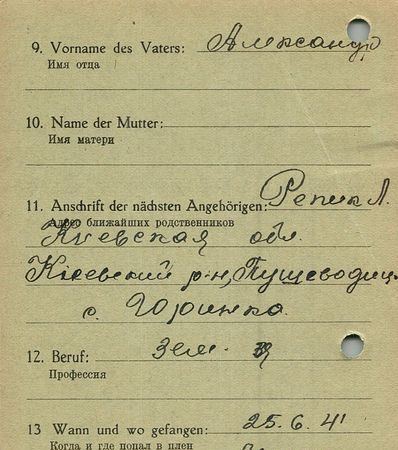 9. Vorname des Vaters: Александр
Имя отца
10. Name der Mutter:
Имя матери
11. Anschrift der nächsten Angehörigen: Репик А.
Адрес ближайших родственников
Киевская обл.
Киевский р-н, Пущеводиц
с. Горинка.
12. Beruf: зем.
Профессия
13 Wann und wo gefangen: 25.6.41
Когда и где попал в плен